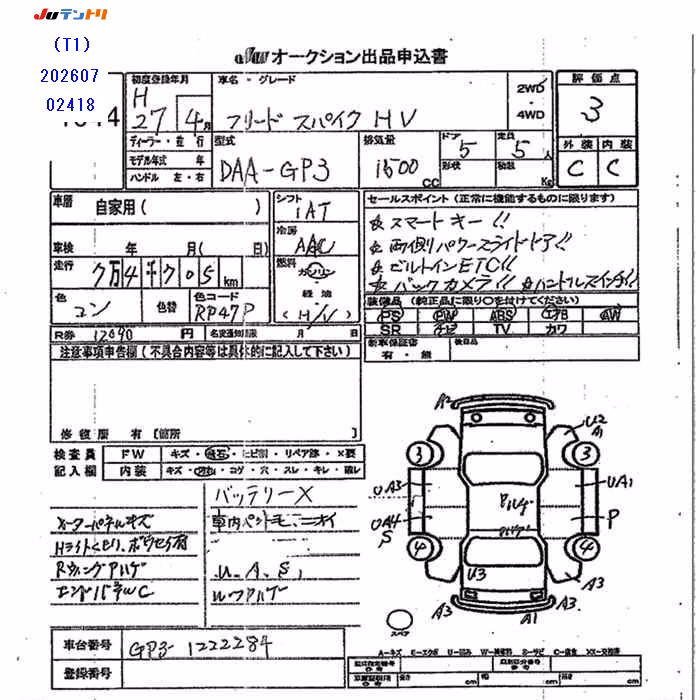 JUテントリ
(T1)
202607
02418
オークション出品申込書
初度登録年月
H
27年4月
ディーラー・並行
モデル年式 年
ハンドル 左・右
車名・グレード
フリード スパイク HV
2WD
4WD
型式
DAA-GP3
排気量
1500
CC
ドア
5
形状
定員
5人
積載
Kg
評価点
3
外装 内装
C C
車歴
自家用( )
車検 年 月( 日)
走行
7万4千705km
色
コン
色替
色コード
RP47P
シフト
IAT
冷房
AAC
燃料
ガソリン
軽油
(H/V)
セールスポイント(正常に機能するものに限ります)
☆スマートキー!!
☆両側パワースライドドア!!
☆ビルトインETC!!
☆バックカメラ!!
装備品(純正品に限り○を付けてください)
PS PW ABS エアB AW
SR ナビ TV カワ
R券 12090 円
名変通知期限 月 日
新車保証書
有・無
後日品
注意事項申告欄(不具合内容等は具体的に記入して下さい)
修復歴 有[箇所 ]
検査員
記入欄
FW キズ・飛石・ヒビ割・リペア跡・X要
内装 キズ・汚れ・コゲ・穴・スレ・キレ・破レ
バッテリーX
メーターパネルキズ
Hライトくもり、
U.A.S,
A2
U2
A1
3
3
UA3
UA1
UA4
S
P
4
4
U3
A3
A3
A1
A3
スペア
車台番号
GP3-1222284
登録番号
A―キズ E―エクボ U―凹み W―補修跡 S―サビ C―腐食 XX―交換済
長さ cm 幅 cm 高さ cm